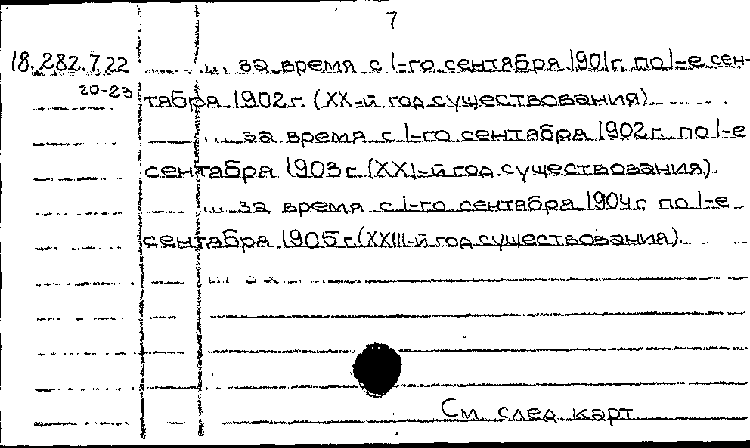 7
18.282.7.22 ... за время с 1-го сентября 1901г. по 1-е сен-
20-23 тября 1902 г. (XX-й год существования).
... за время с 1-го сентября 1902 г. по 1-е
сентября 1903 г. (XXI-й год существования).
... за время с 1-го сентября 1904 г. по 1-е
сентября 1905 г. (XXIII-й год существования).
См. след. карт.